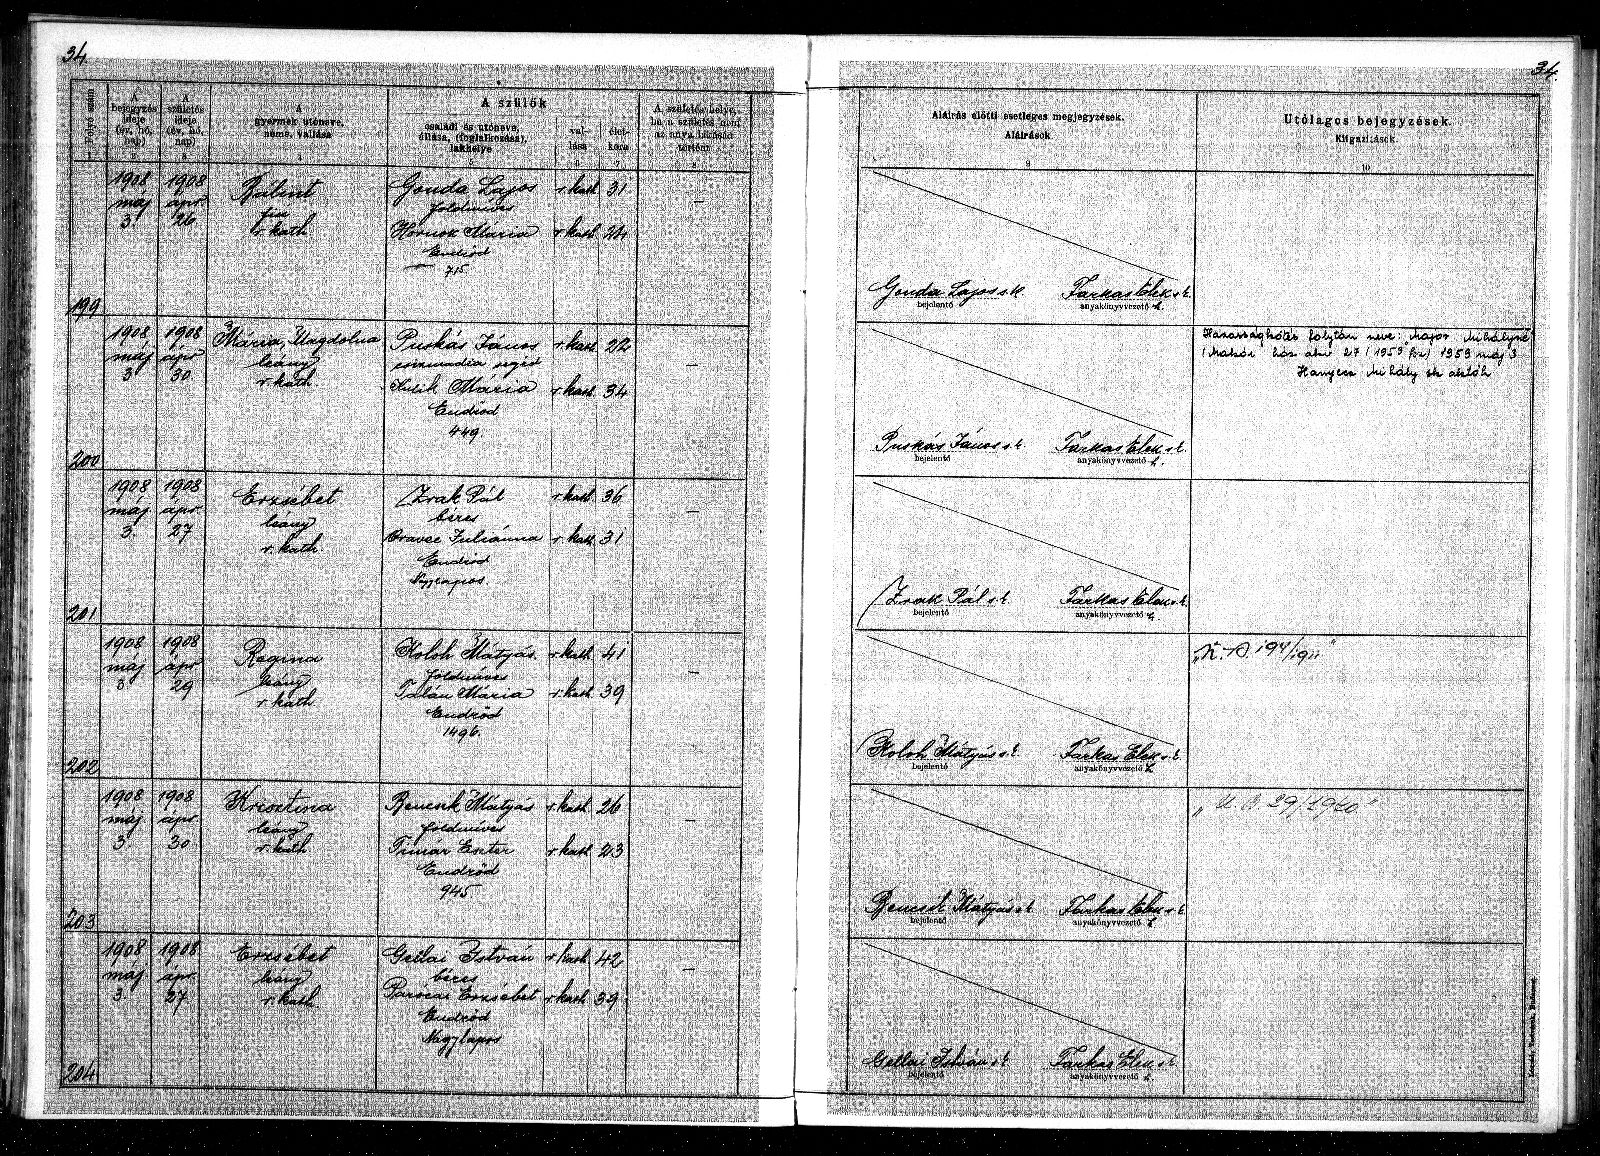 34.
34.
Folyó szám
A bejegyzés ideje (év, hó, nap)
A születés ideje (év, hó, nap)
A gyermek utóneve, neme, vallása
A szülők
családi és utóneve, állása, (foglalkozása), lakhelye
vallása
életkora
A születés helye, ha a születés nem az anya lakásán történt
Aláírás előtti esetleges megjegyzések.
Aláírások
Utólagos bejegyzések.
Kiigazítások.
9
10
199
1908 máj 3.
1908 ápr 26
Bálint
fiu
r. kath
Gonda Lajos r. kath 31
földmíves
Hornok Mária r. kath 24
Endrőd
715
—
Gonda Lajos s.k. Farkas Elek s.k.
bejelentő anyakönyvvezető h.
200
1908 máj 3
1908 ápr 30
Mária, Magdolna
leány
r. kath
Puskás János r. kath 22
csizmadia segéd
Kulik Mária r. kath 34
Endrőd
449.
—
Puskás János s.k. Farkas Elek s.k.
bejelentő anyakönyvvezető h.
Házasságkötés folytán neve: Major Mihályné
(Makói ház. akv 27/1959 fsz) 1959 máj 3
Hanyecz Mihály sk akvh
201
1908 máj 3.
1908 ápr. 27
Erzsébet
leány
r. kath.
Zrak Pál r. kath 36
béres
Oravec Juliánna r. kath 31
Endrőd
Nagylapos.
—
Zrak Pál s.k. Farkas Elek s.k.
bejelentő anyakönyvvezető h.
202
1908 máj 3
1908 ápr 29
Regina
leány
r. kath
Koloh Mátyás. r. kath 41
földmíves
Talán Mária r. kath 39
Endrőd
1496.
—
Koloh Mátyás s.k. Farkas Elek s.k.
bejelentő anyakönyvvezető h.
203
1908 máj 3.
1908 ápr. 30
Krisztina
leány
r. kath
Bencsik Mátyás r. kath 26
földmíves
Timár Eszter r. kath 23
Endrőd
945
—
Bencsik Mátyás s.k. Farkas Elek s.k.
bejelentő anyakönyvvezető h.
29/1960"
204
1908 máj 3.
1908 ápr. 27
Erzsébet
leány
r. kath
Gellai István r. kath 42
béres
Parócai Erzsébet r. kath 39
Endrőd
Nagylapos
—
Gellai István s.k. Farkas Elek s.k.
bejelentő anyakönyvvezető h.